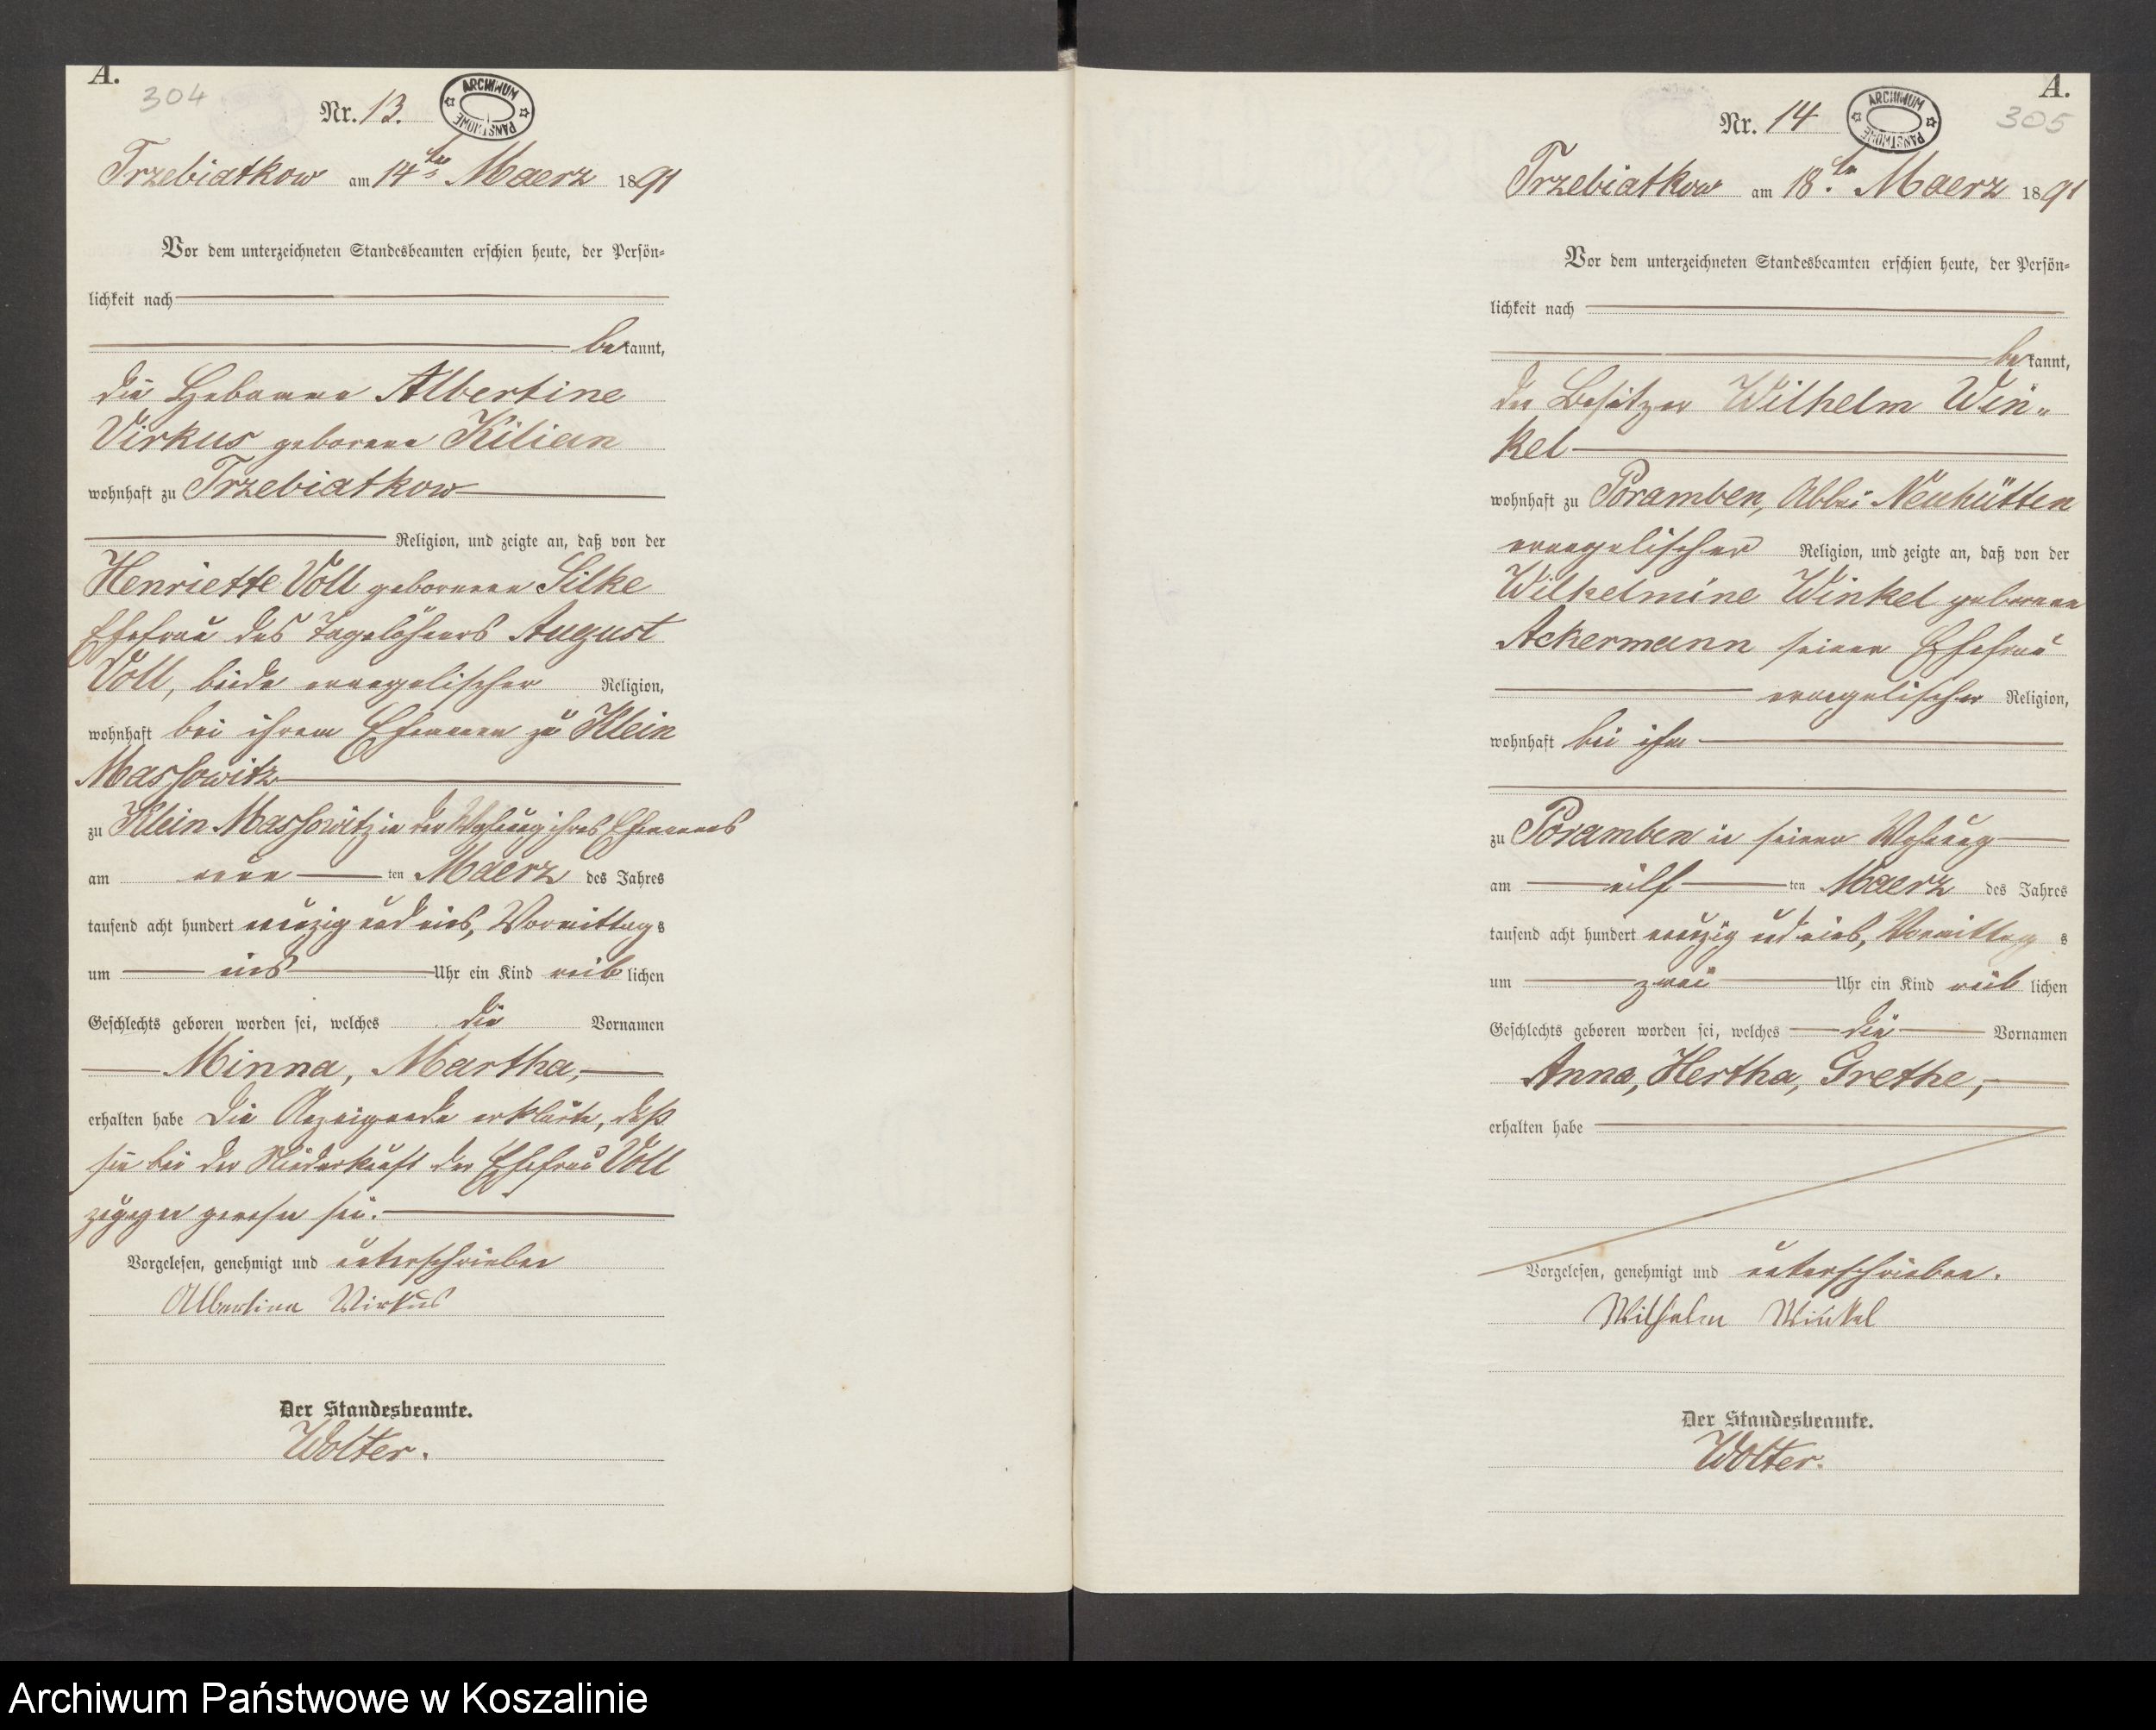 A.
304
Nr. 13.
ARCHIWUM PAŃSTWOWE
Trzebiatkow am 14ten Maerz 1891
Vor dem unterzeichneten Standesbeamten erschien heute, der Persön-
lichkeit nach
bekannt,
die Hebamme Albertine
Virkus geborene Kilian
wohnhaft zu Trzebiatkow
Religion, und zeigte an, daß von der
Henriette Voll geborenen Silke
Ehefrau des Tagelöhners August
Voll, beide evangelischer Religion,
wohnhaft bei ihrem Ehemann zu Klein
Massowitz
zu Klein Massowitz in der Wohnung ihres Ehemannes
am neun ten Maerz des Jahres
tausend acht hundert neunzig und eins, Vormittags
um eins Uhr ein Kind weiblichen
Geschlechts geboren worden sei, welches die Vornamen
Minna, Martha,
erhalten habe Die Anzeigende erklärte, daß
sie bei der Niederkunft der Ehefrau Voll
zugegen gewesen sei.
Vorgelesen, genehmigt und unterschrieben
Albertine Virkus
Der Standesbeamte.
Wolter.
A.
305
Nr. 14
ARCHIWUM PAŃSTWOWE
Trzebiatkow am 18.ten Maerz 1891
Vor dem unterzeichneten Standesbeamten erschien heute, der Persön-
lichkeit nach
bekannt,
der Besitzer Wilhelm Win-
kel
wohnhaft zu Poramben, Abbau Neuhütten
evangelischer Religion, und zeigte an, daß von der
Wilhelmine Winkel geborenen
Ackermann seiner Ehefrau
evangelischer Religion,
wohnhaft bei ihm
zu Poramben in seiner Wohnung
am eilf ten Maerz des Jahres
tausend acht hundert neunzig und eins, Vormittags
um zwei Uhr ein Kind weiblichen
Geschlechts geboren worden sei, welches die Vornamen
Anna, Hertha, Grethe,
erhalten habe
Vorgelesen, genehmigt und unterschrieben.
Wilhelm Winkel
Der Standesbeamte.
Wolter.
Archiwum Państwowe w Koszalinie